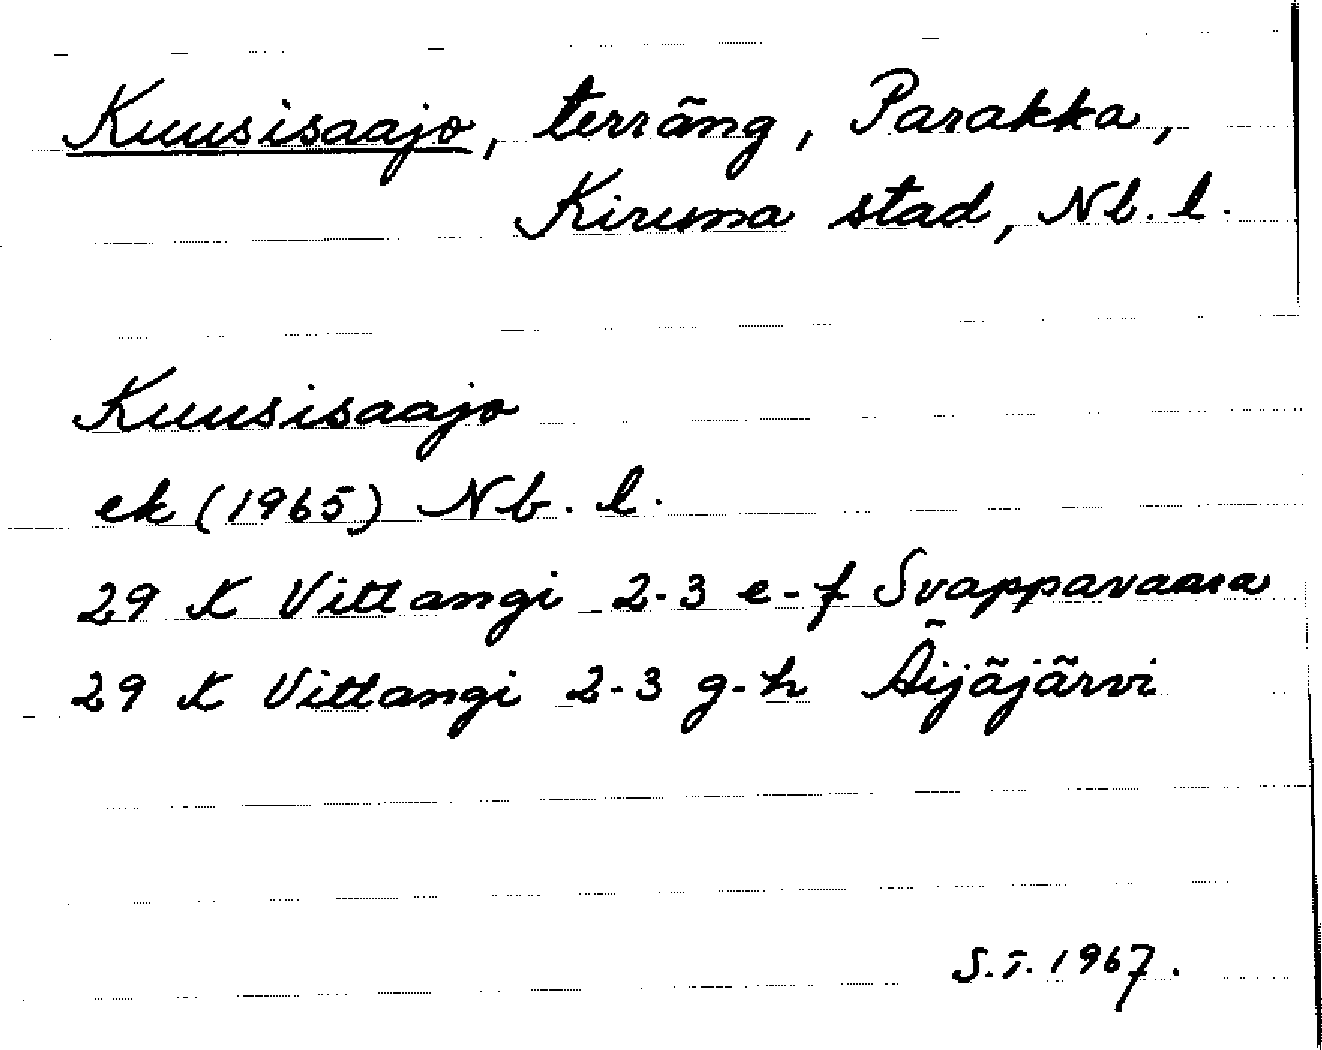 Kuusisaajo, terräng, Parakka,
Kiruna stad, Nb. l.
Kuusisaajo
ek (1965) Nb. l.
29 K Vittangi 2-3 e-f Svappavaara
29 K Vittangi 2-3 g-h Äijäjärvi
S.T. 1967.